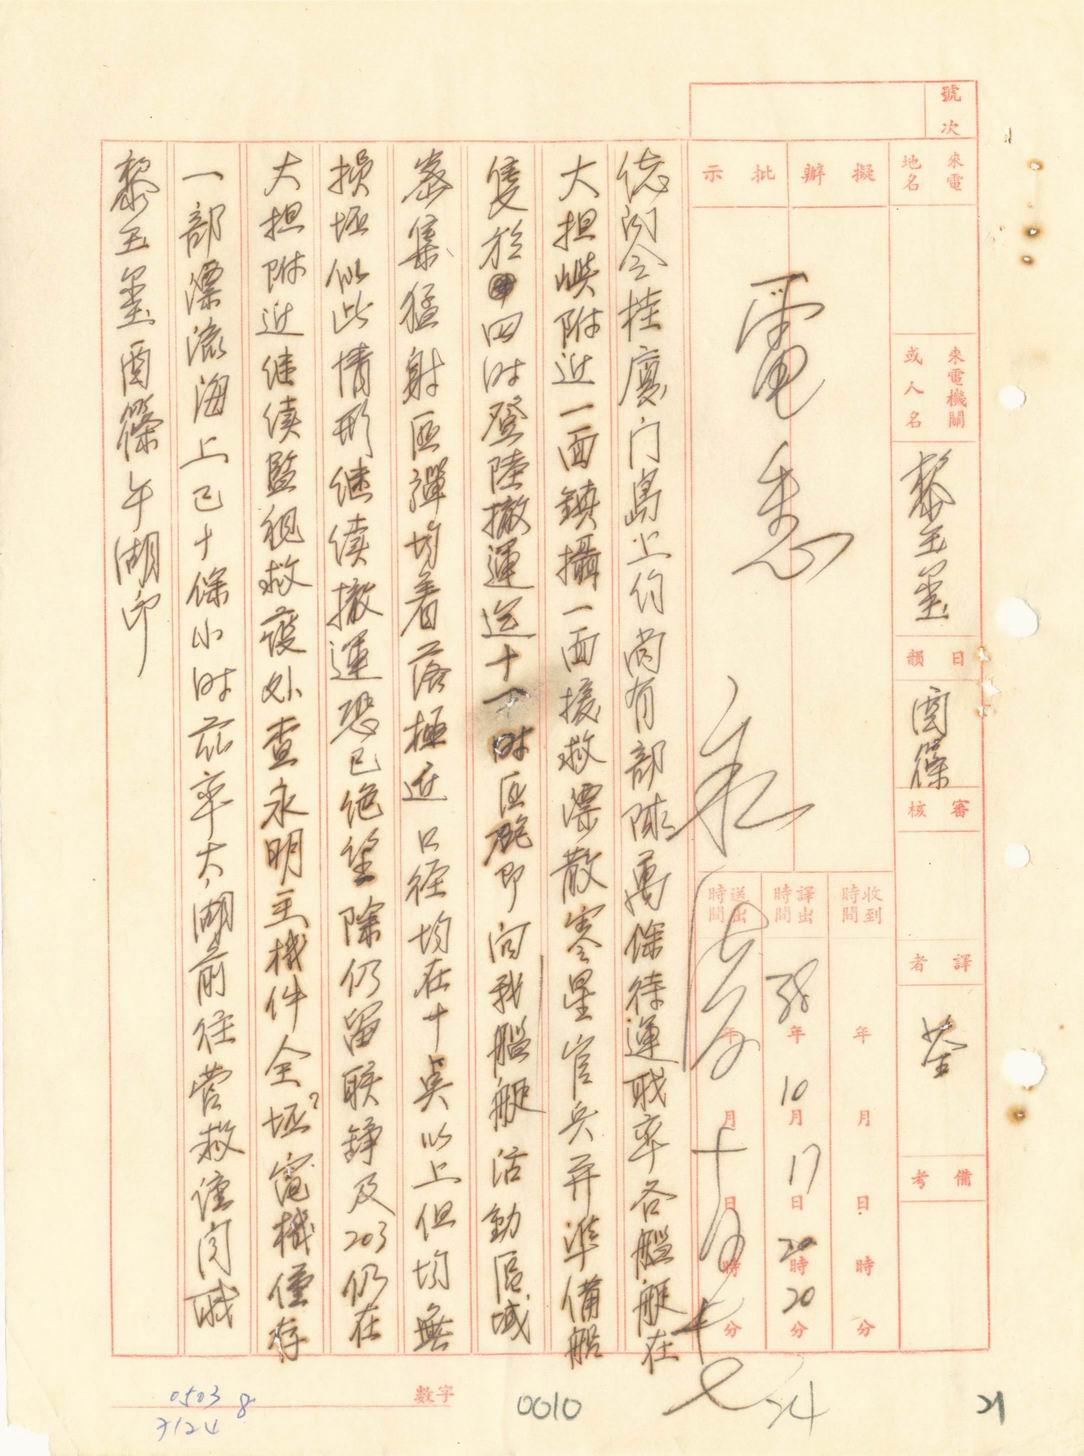 號次
來電地名
來電機關或人名
黎玉璽
日韻
酉篠
審核
譯者
荃
備考
擬辦
批示
電悉
收到時間 年 月 日 時 分
譯出時間 38年10月17日20時20分
送出時間 年 月 日 時 分
總閣今桂廈门島上約尚有部隊萬餘待運职率各艦艇在
大担嶼附近一面鎮攝一面援救漂散零星官兵并準備船
隻於四时登陸撤運迄十一时匪砲即向我艦艇活動區域
密集猛射匪彈均着落極近口徑均在十吋以上但均無
損坯似此情形継续撤運恐已绝望除仍留联錚及203仍在
大担附近继续監視救護外查永明主機件全坯電機僅存
一部漂流海上已十餘小时茲率大湖前往营救谨闻职
黎玉璽酉篠午湖印
數字
0503 8
7124
0010
24
21